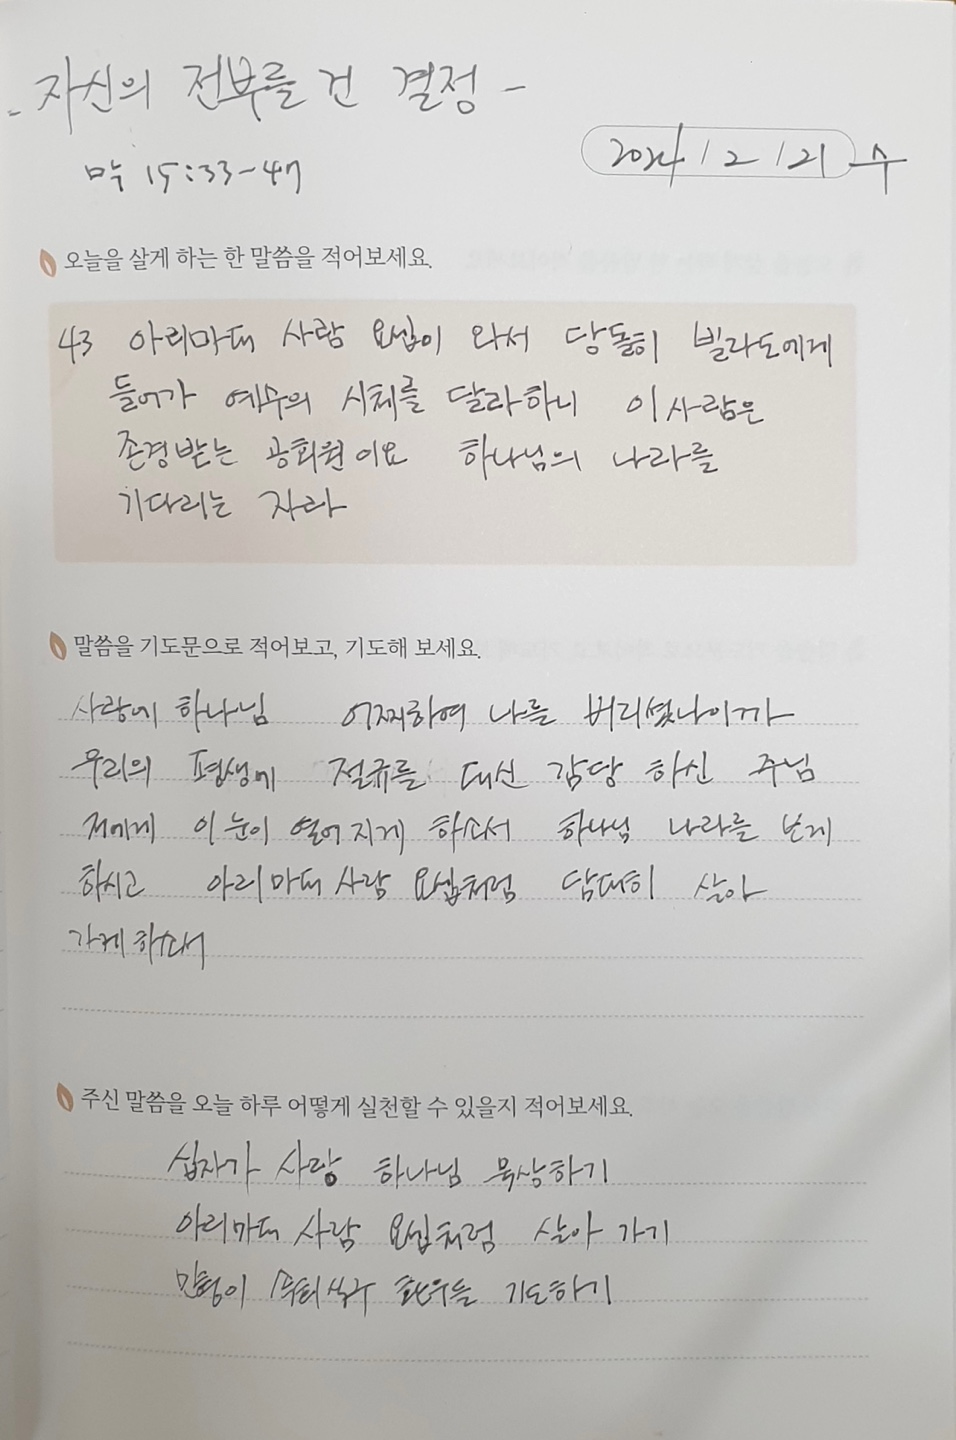 - 자신의 전부를 건 결정 -
막 15:33-47
2024/2/21 수
오늘을 살게 하는 한 말씀을 적어보세요.
43 아리마대 사람 요셉이 와서 당돌히 빌라도에게
들어가 예수의 시체를 달라하니 이 사람은
존경받는 공회원이요 하나님의 나라를
기다리는 자라
말씀을 기도문으로 적어보고, 기도해 보세요.
사랑에 하나님 어찌하여 나를 버리셨나이까
우리의 평생에 절규를 대신 감당 하신 주님
저에게 이 눈이 열어지게 하소서 하나님 나라를 보게
하시고 아리마대 사람 요셉처럼 담대히 살아
가게 하소서
주신 말씀을 오늘 하루 어떻게 실천할 수 있을지 적어보세요.
십자가 사랑 하나님 묵상하기
아리마대 사람 요셉처럼 살아 가기
기도하기